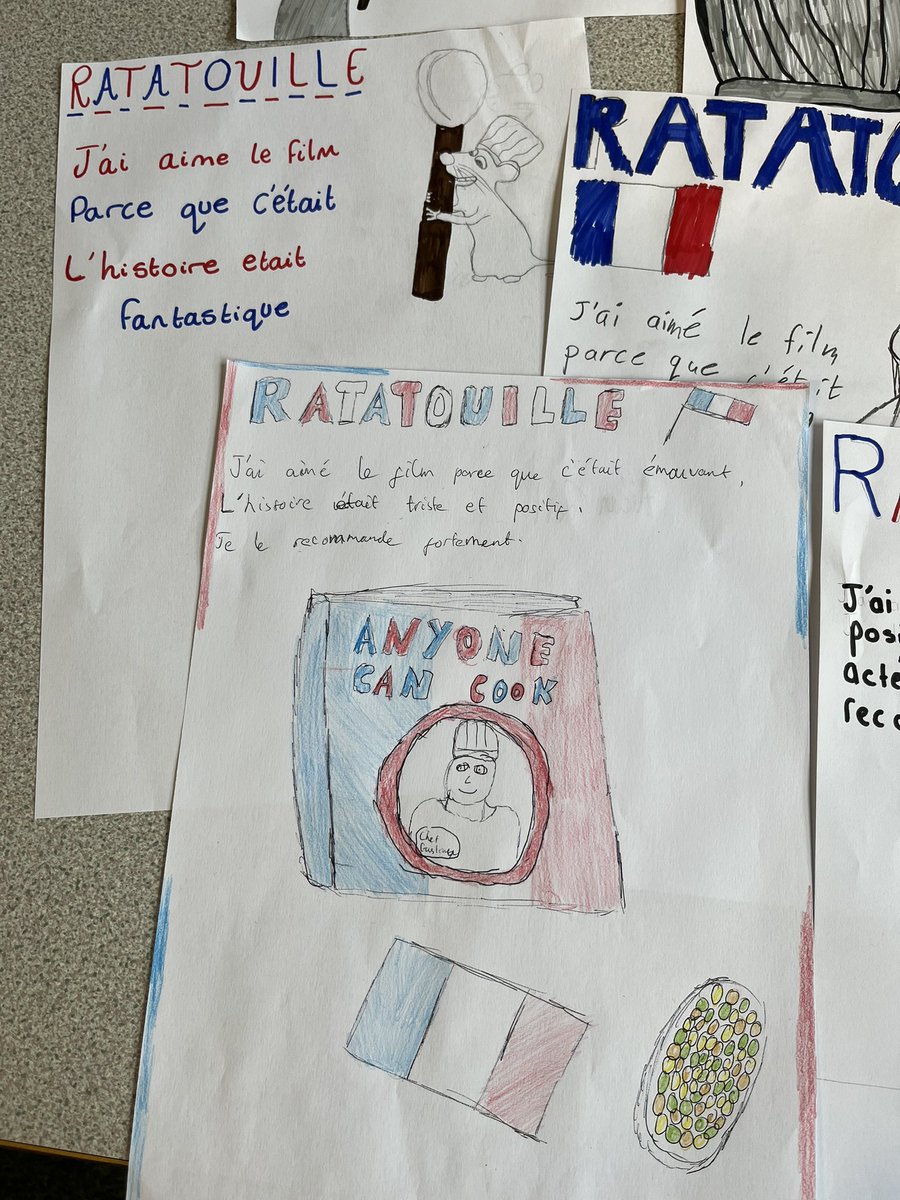 RATATOUILLE
J'ai aime le film
Parce que c'était
L'histoire etait
fantastique
RATATO
J'ai aimé le film
parce que c'était
RATATOUILLE
J'ai aimé le film parce que c'était émouvant,
L'histoire était triste et positif.
Je le recommande fortement.
ANYONE
CAN COOK
Chef
R
J'ai
posi
acte
reco